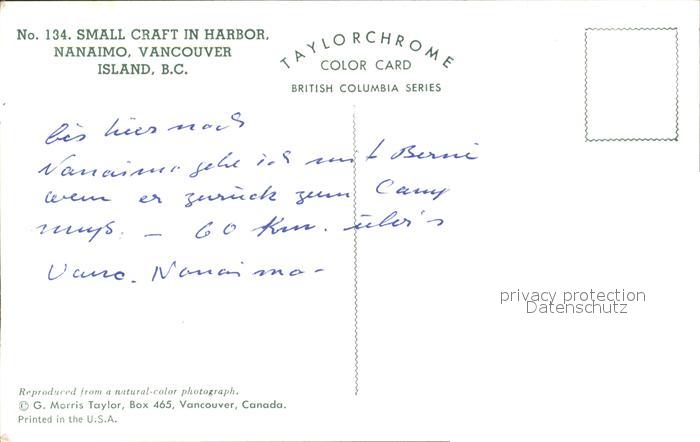 No. 134. SMALL CRAFT IN HARBOR,
NANAIMO, VANCOUVER
ISLAND, B.C.
TAYLORCHROME
COLOR CARD
BRITISH COLUMBIA SERIES
bis hier nach
Nanaimo gehe ich mit Berni
wenn er zurück zum Camp
muß. – 60 Km. über's
Vanc. Nanaimo –
privacy protection
Datenschutz
Reproduced from a natural-color photograph.
© G. Morris Taylor, Box 465, Vancouver, Canada.
Printed in the U.S.A.